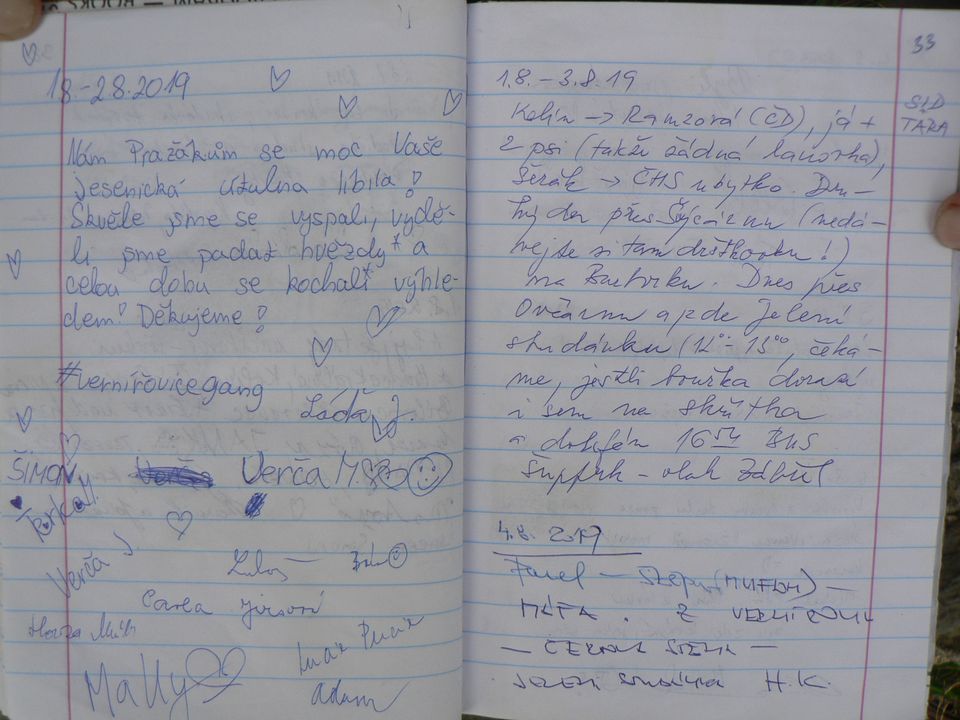 18.-2.8.2019
Nám Pražákům se moc Vaše
jesenická útulna líbila!
Skvěle jsme se vyspali, vydě-
li jsme padat hvězdy* a
celou dobu se kochali* výhle-
dem! Děkujeme!
#vernířovicegang
Láďa J.
ŠIMON Verča
Terka H.
Verča J.
Luboš
Carla
Mally
adam
33
SID
TARA
1.8. - 3.8.19
Kolín -> Ramzová (ČD), já +
2 psi (takže žádná lanovka),
Šerák -> CHS ubytko. Dru-
hý den přes Švýcárnu (nedá-
vejte si tam dršťkovku!)
na . Dnes přes
Ovčárnu a zde Jelení
studánku (12°°- 13°°, čeká-
me, jestli bouřka dorazí
i sem na
a 16 BUS
Šumperk - vlak Zábřeh
4.8. 2019
Pavel -
MÁŤA . Z
- ČERNÁ STENA -
JELENÍ STUDÁNKA H.K.